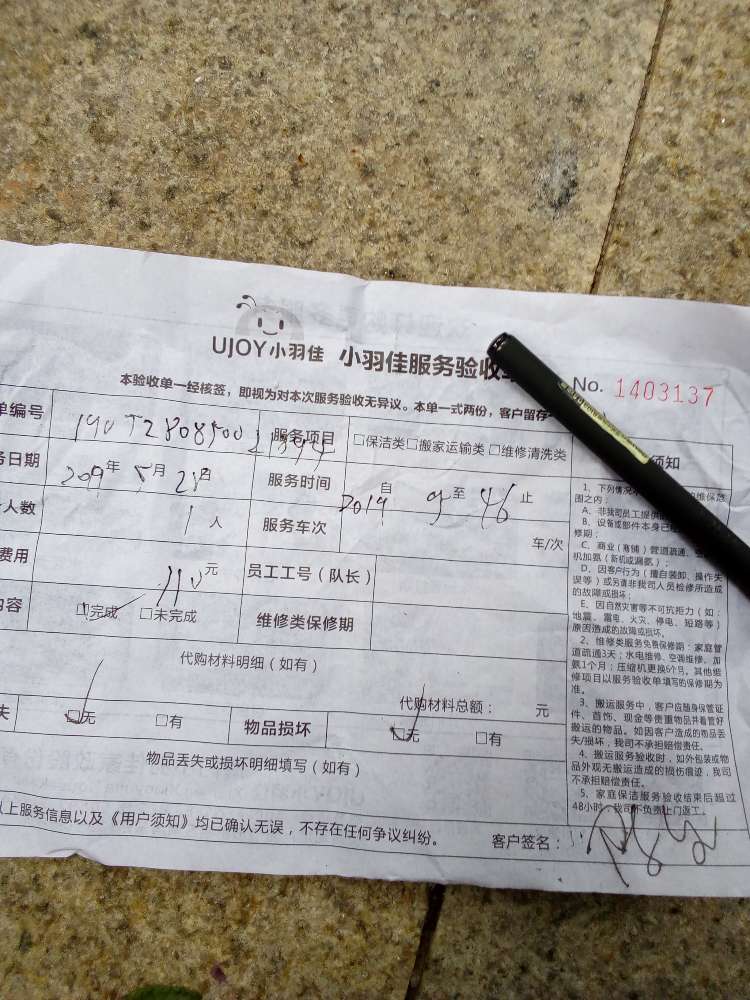 UJOY小羽佳 小羽佳服务验收
No. 1403137
本验收单一经核签，即视为对本次服务验收无异议。本单一式两份，客户留存一
单编号
服务项目 □保洁类□搬家运输类□维修清洗类
须知
务日期 年 5月 28日 服务时间 自 至 止
人数 1人 服务车次 车/次
费用 110元 员工工号（队长）
内容 □完成 □未完成 维修类保修期
代购材料明细（如有）
代购材料总额： 元
失 □无 □有 物品损坏 □无 □有
物品丢失或损坏明细填写（如有）
以上服务信息以及《用户须知》均已确认无误，不存在任何争议纠纷。 客户签名：
1、下列情况
范围之内：
A、非我司员工提供
B、设备或部件本身已
修期；
C、商业（商铺）管道疏通、
机加氨（新机或漏氨）；
D、因客户行为（擅自装卸、操作失
误等）或另请非我司人员检修所造成
的故障或损坏；
E、因自然灾害等不可抗拒力（如：
地震、雷电、火灾、停电、短路等）
原因造成的故障或损坏。
2、维修类服务免费保修期：家庭管
道疏通3天；水电维修、空调维修、加
氨1个月；压缩机更换6个月。其他维
修项目以服务验收单填写的保修期为
准。
3、搬运服务中，客户应随身保管证
件、首饰、现金等贵重物品并看管好
搬运的物品。如因客户造成的物品丢
失/损坏，我司不承担赔偿责任。
4、搬运服务验收时，如外包装或物
品外观无搬运造成的损伤痕迹，我司
不承担赔偿责任。
5、家庭保洁服务验收结束后超过
48小时，我司不负责上门返工。